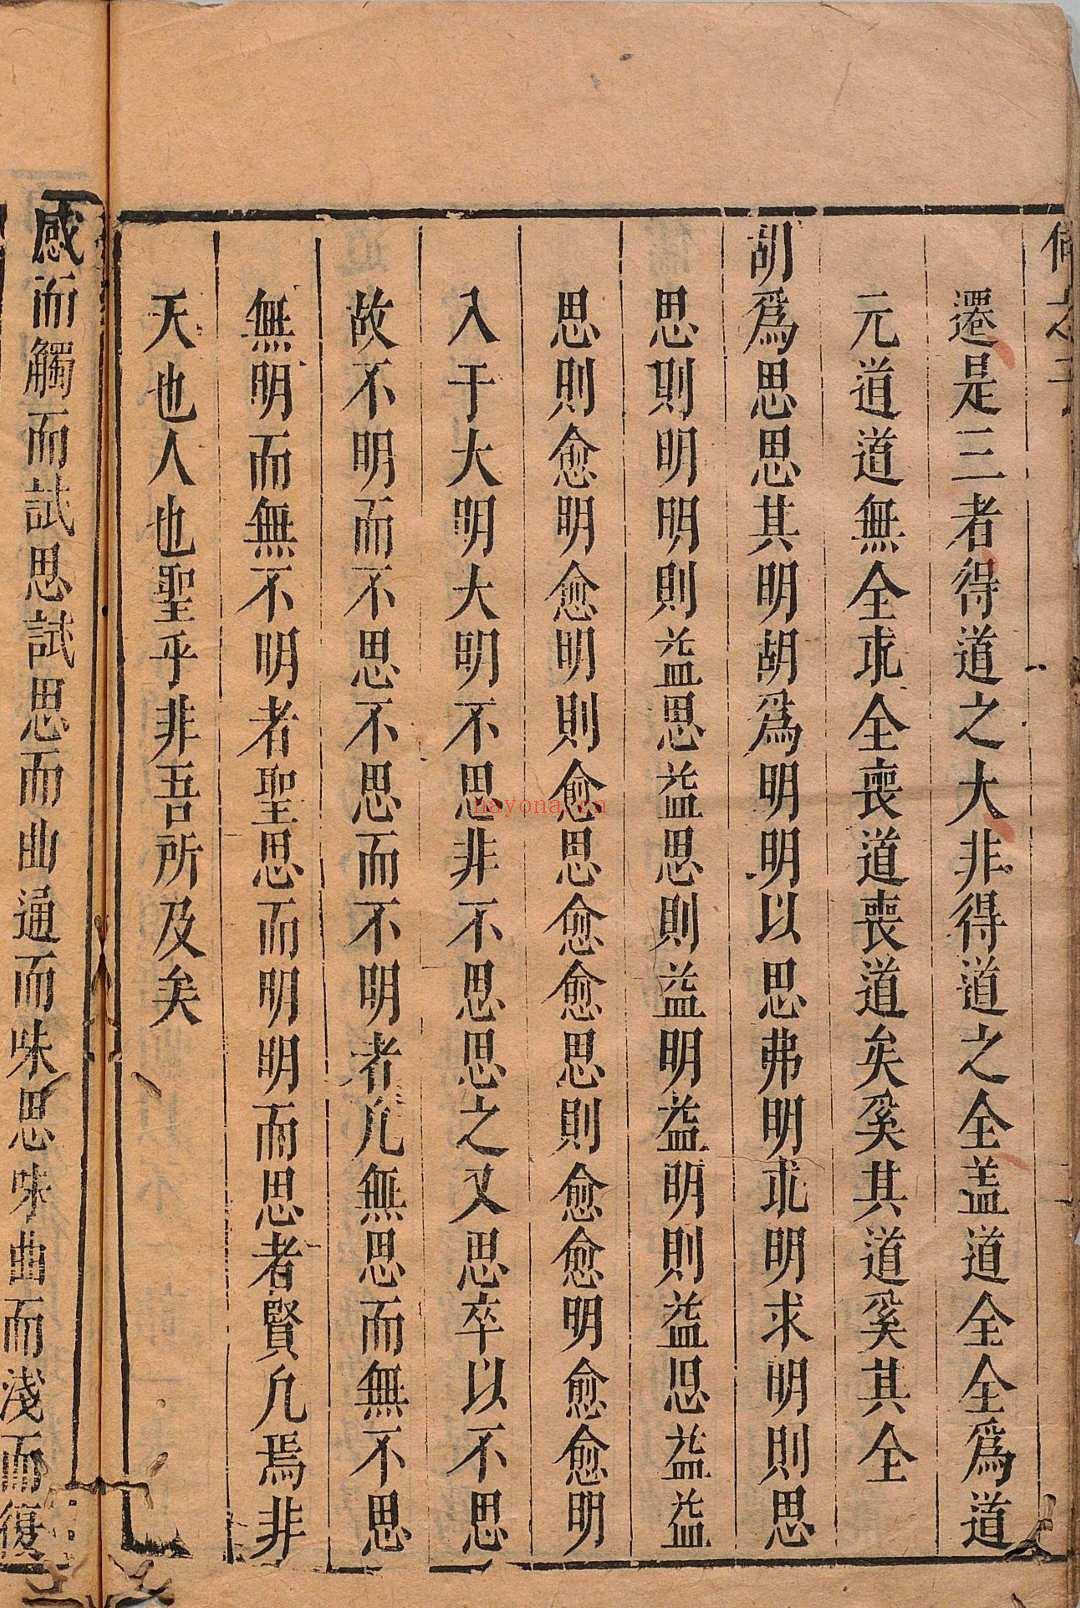 還是三者得道之大非得道之全盖道全全爲道
元道道無全求全喪道喪道矣奚其道奚其全
胡爲思思其明胡爲明明以思弗明求明求明則思
思則明明則益思益思則益明益明則益思益益
思則愈明愈明則愈思愈愈思則愈愈明愈愈明
入于大明大明不思非不思思之又思卒以不思
故不明而不思不思而不明者凡無思而無不思
無明而無不明者聖思而明明而思者賢凡焉非
天也人也聖乎非吾所及矣
感而觸而試思試思而曲通而味思味曲而淺而復
nayona.cn